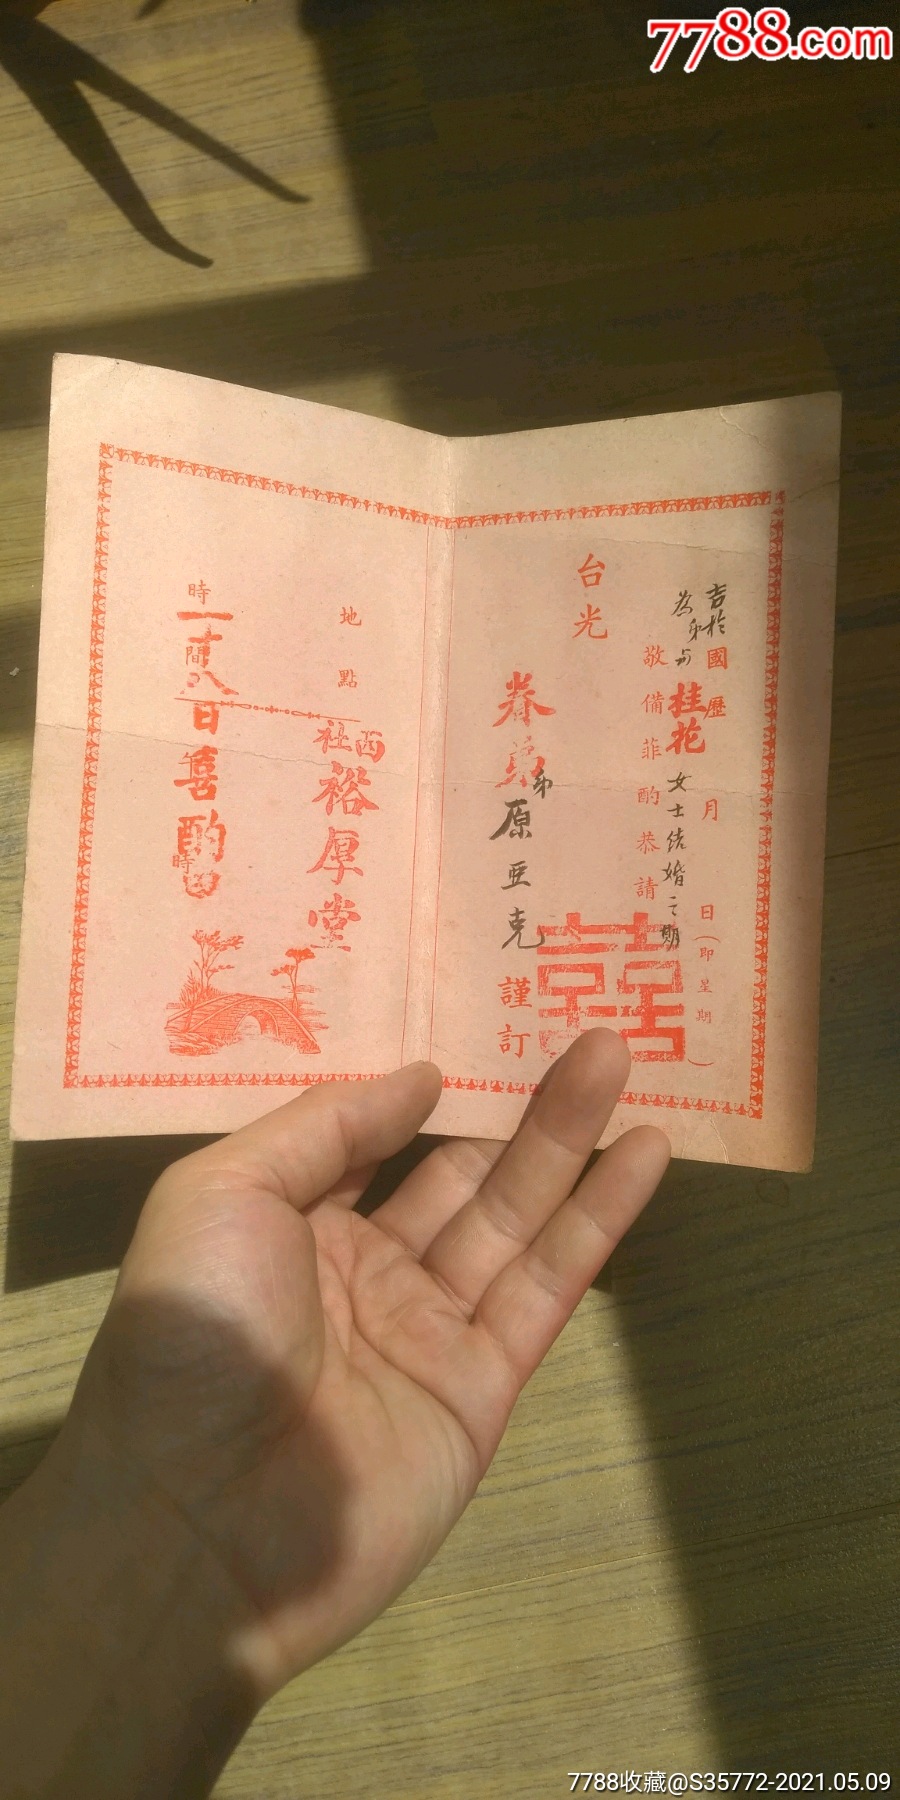 7788.com
吉於國歷 月 日(即星期 )
為弟与桂花女士结婚之期
敬備菲酌恭請
台光
眷弟
弟原亚克謹訂
囍
地點
西社裕厚堂
時間 時
十八日喜酌
7788收藏@S35772-2021.05.09